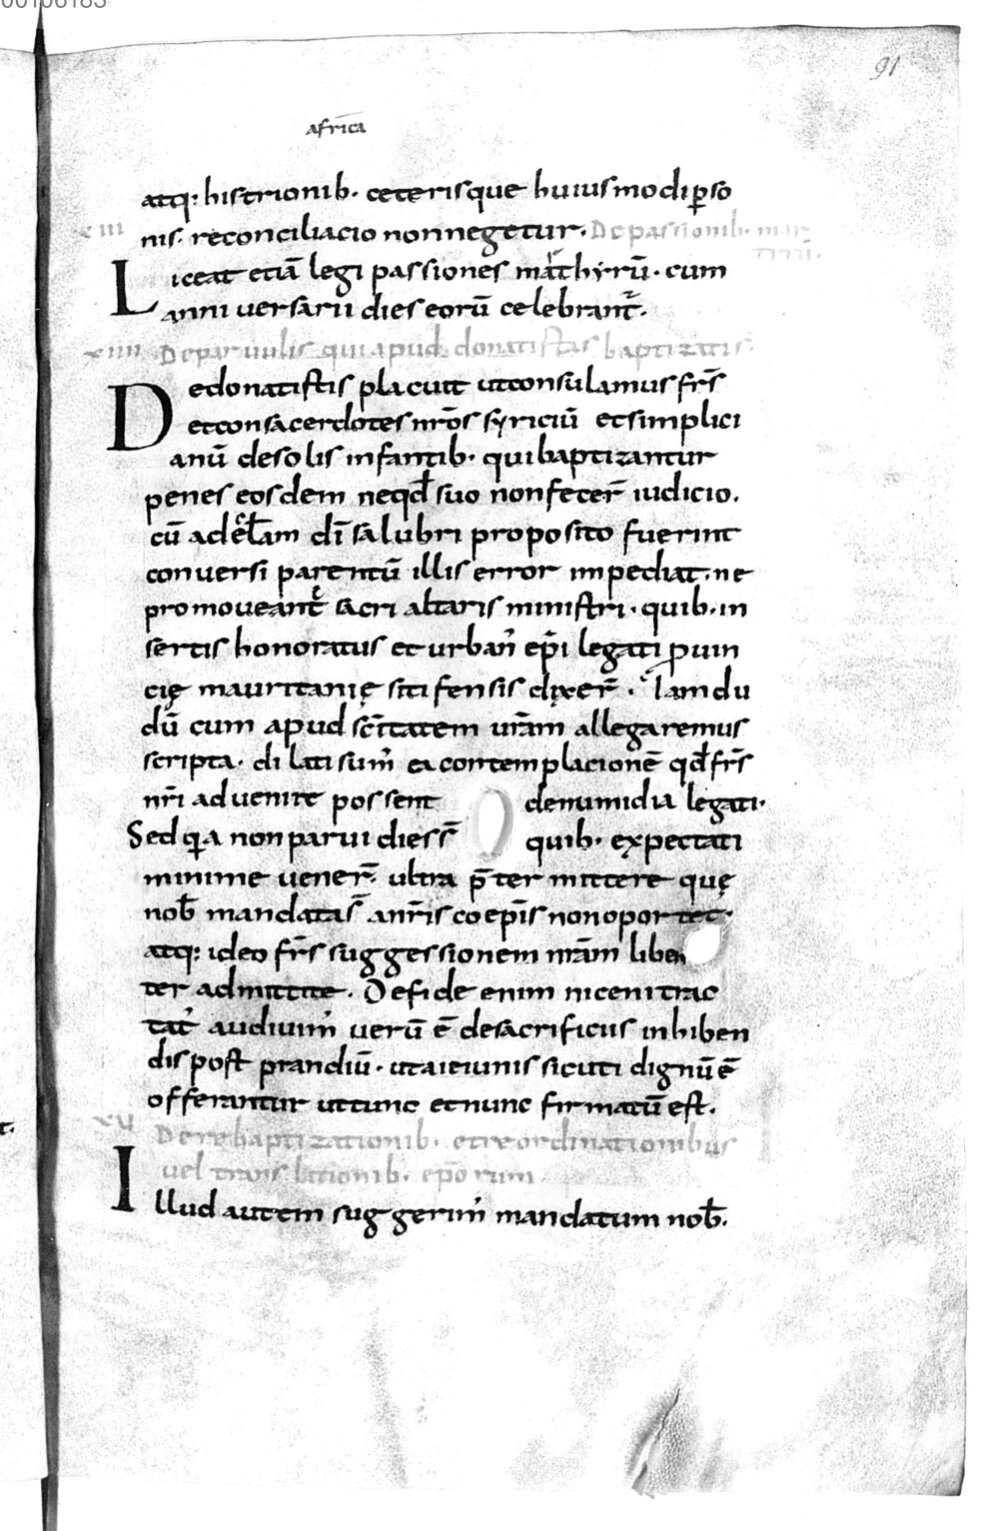 91
africa
atq: histrionib· ceterisque huiusmodi p̱so
xiii nis· reconciliacio non negetur· De passionib· mar
tirū·
Liceat etiā legi passiones mathyrū· cum
anniuersarii dies eorū celebrant̄·
xiiii De paruulis qui apud donatistas baptizatis·
De donatistis placuit ut consulamus fr̄s
et consacerdotes nr̄os syriciū et simplici
anū de solis infantib· qui baptizantur
penes eosdem ne qđ suo non fecer̄ iudicio·
cū ad eccƚam dī salubri proposito fuerint
conuersi parentū illis error impediat· ne
promoueant̄ sacri altaris ministri· quib· in
sertis honoratus et urban' ep̄i legati ꝓuin
cię mauritanię sitifensis dixer̄· Iam du
dū cum apud sc̄itatem ur̄am allegaremus
scripta· dilati sum' ea contemplacionē qđ fr̄s
nr̄i aduenire possent de numidia legati·
Sed q̇a non parui dies s̄ quib· expectati
minime uener̄· ultra p̄termittere quę
nob̄ mandata s̄ a nr̄is coep̄is non oportet·
atq: ideo fr̄s suggessionem nr̄am liben
ter admittite· De fide enim niceni trac
tat' audiuim' uerū ē de sacrificiis inhiben
dis post prandiū· ut a ieiunis sicuti dignū ē
offerantur ut tunc et nunc firmatū est·
xv De rebaptizationib· et reordinationibus
uel translationib· ep̄orum
Illud autem suggerim' mandatum nob̄·